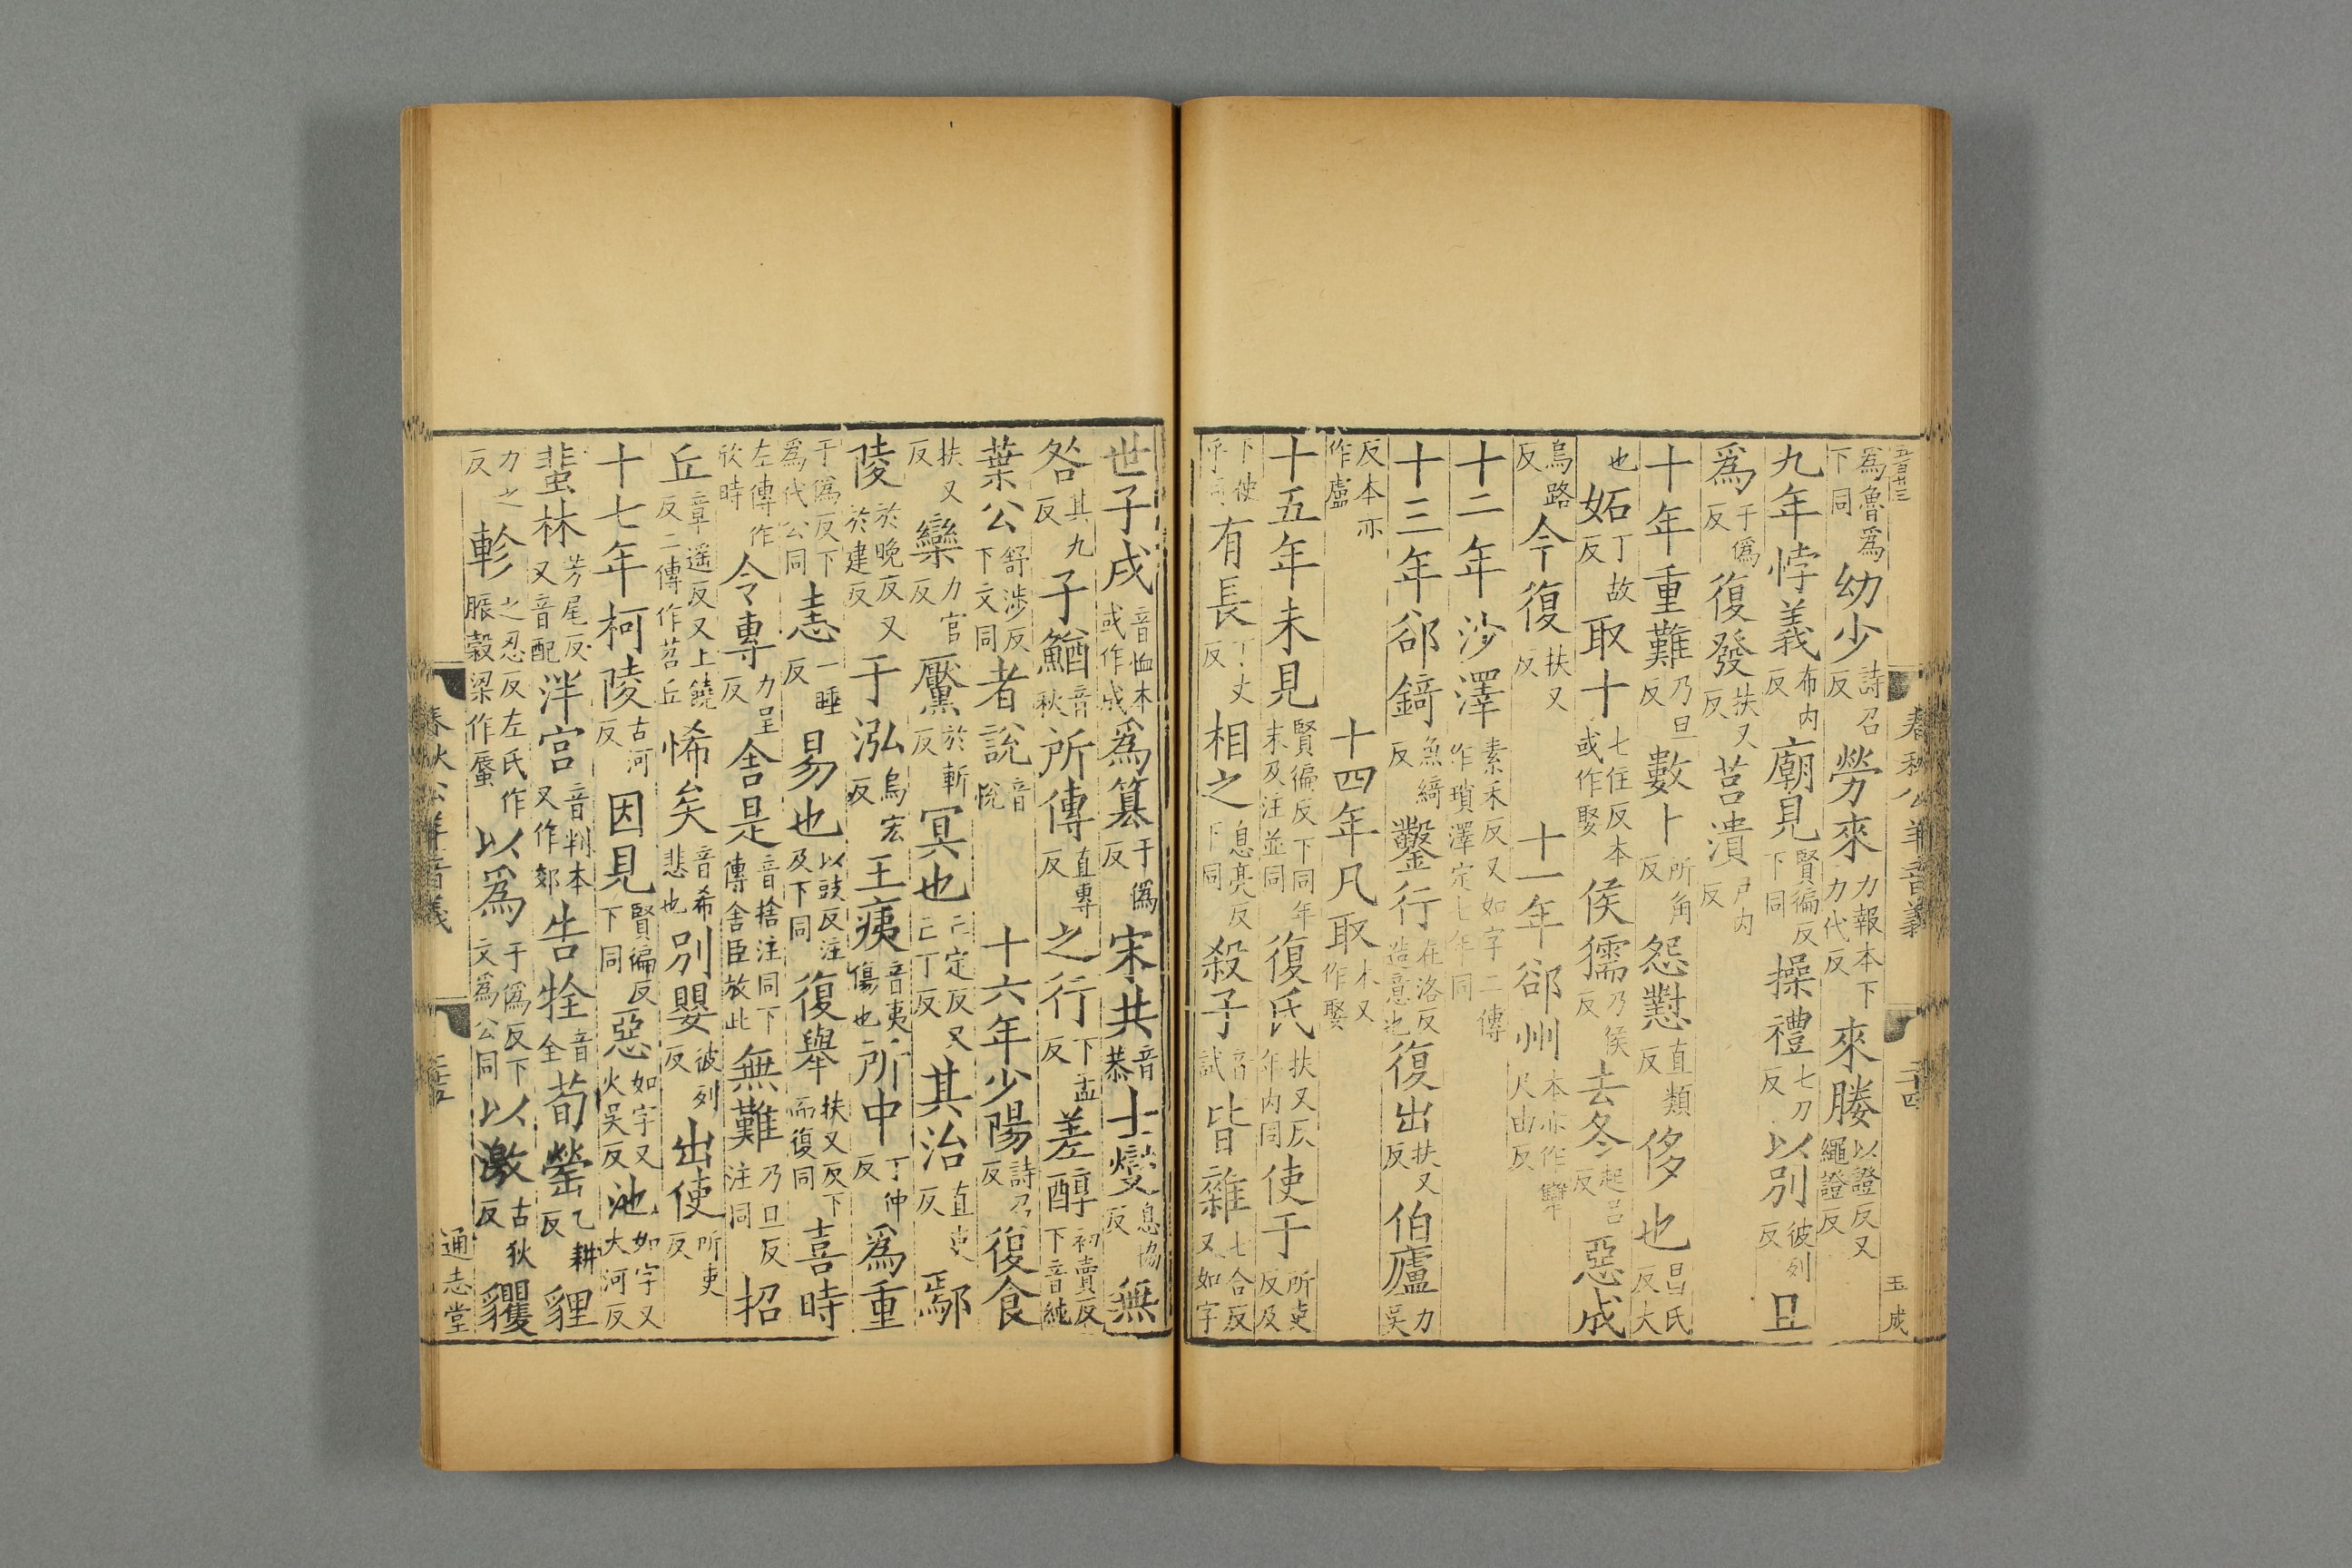 春秋公羊音義 玉成
爲魯爲下同幼少詩召反勞來力報本下力代反來媵以證反又繩證反
九年悖義布内反廟見賢徧反下同操禮七刀反以别彼列反且
爲于僞反復發扶又反莒潰戸内反
十年重難乃旦反數卜所角反怨懟直類反侈也昌氏反大
也妬丁故反取十七住反本或作娶侯獳乃侯反去冬起呂反惡成
烏路反今復扶又反十一年郤州本亦作犨尺由反
十二年沙澤素禾反又如字二傳作瑣澤定七年同
十三年郤錡魚綺反鑿行在洛反造意也復出扶又反伯廬力吳
反本亦作盧十四年凡取本又作娶
十五年未見賢徧反下同年末及注並同復氏扶又反年内同使于所吏反及
下使乎同有長丁丈反相之息亮反下同殺子音試皆雜七合反又如字
世子戌音恤本或作成爲篡于僞反宋共音恭士燮息協反無
咎其九反子鰌音秋所傳直專反之行下孟反差醇初賣反下音純
葉公舒涉反下文同者說音悅十六年少陽詩召反復食
扶又反欒力官反黶於斬反冥也亡定反又亡丁反其治直吏反鄢
陵於晚反又於建反于泓烏宏反王痍音夷傷也所中丁仲反爲重
于僞反下爲代公同恚一睡反易也以豉反注及下同復舉扶又反下而復同喜時
左傳作欣時令專力呈反舍是音捨注同下傳舍臣放此無難乃旦反注同招
丘章遥反又上饒反二傳作苕丘悕矣音希悲也别嬰彼列反出使所吏反
十七年柯陵古河反因見賢徧反下同惡如字又火吳反池如字又大河反
蜚林芳尾反又音配泮宫音判本又作郊告牷音全荀罃乙耕反貍
力之反軫之忍反左氏作脤穀梁作蜃以爲于僞反下文爲公同以激古狄反貜
春秋公羊音義 通志堂